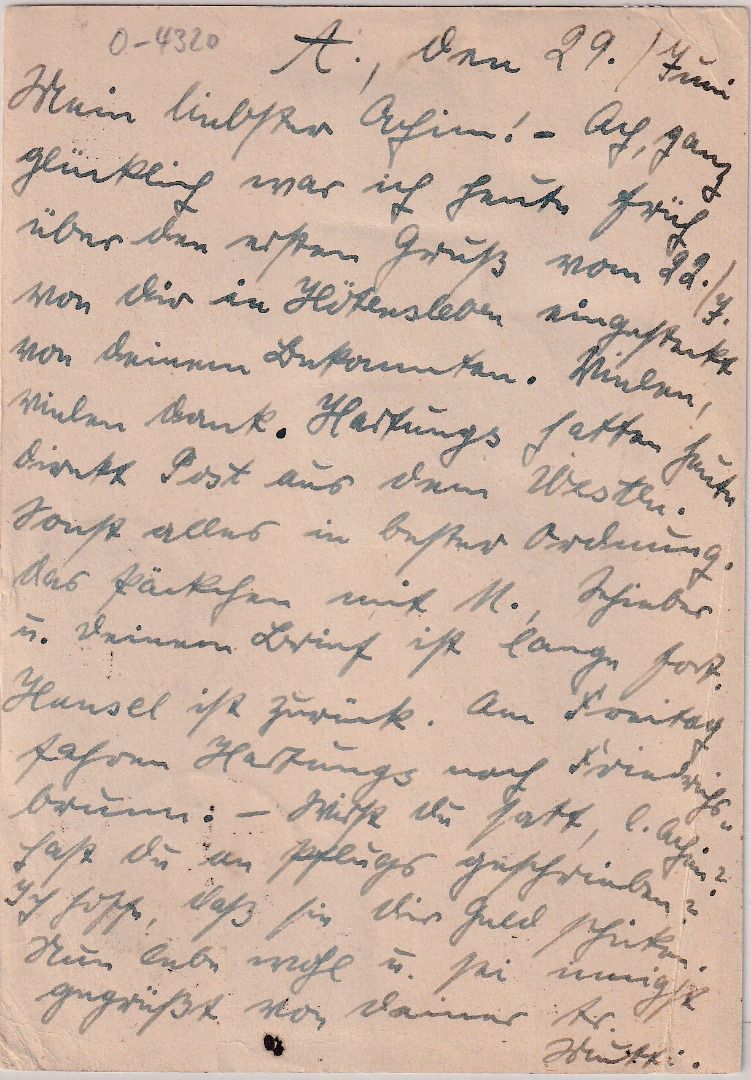 O-4320
A., den 29./Juni
Mein liebster Achim! - Ach, ganz
glücklich war ich heute früh
über den ersten Gruß vom 22./7.
von dir in Hötensleben eingesteckt
von deinem Bekannten. Vielen,
vielen Dank. Hartungs hatten heute
direkt Post aus dem Westen.
Sonst alles in bester Ordnung.
Das Päckchen mit M., Schieber
u. deinem Brief ist lange fort.
Hansel ist zurück. Am Freitag
fahren Hartungs nach Friedrichs-
brunn. - Wirst du satt, l. Achim?
Hast du an Pflugs geschrieben?
Ich hoffe, daß sie dir Geld schicken.
Nun lebe wohl u. sei innigst
gegrüßt von deiner tr.
Mutti.